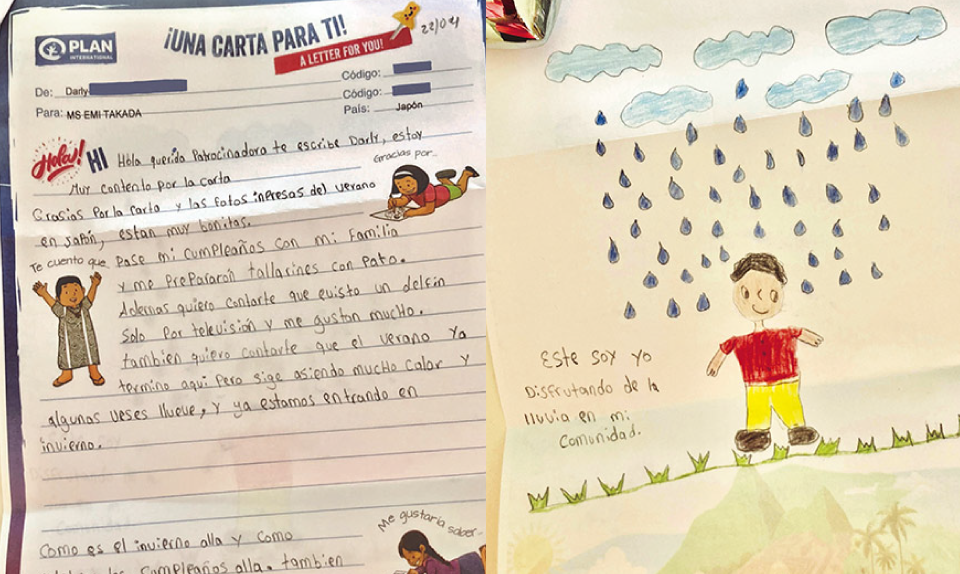 PLAN
INTERNATIONAL
¡UNA CARTA PARA TI!
A LETTER FOR YOU!
22/04
De: Darly
Código:
Código:
Para: MS EMI TAKADA
País: Japón
Hola! HI Hola querida Patrocinadora te escribe Darly, estoy
Muy contento por la carta
Gracias por...
Grasias Por la carta y las fotos inpresas del verano
en japón, estan muy bonitas.
Te cuento que Pase mi cumpleaños con mi Familia
y me PrePararon tallarines con Pato.
Ademas quiero contarte que evisto un delfin
solo Por televisión y me gustan mucho.
tambien quiero contarte que el verano ya
termino aqui Pero sige asiendo mucho calor y
algunas veses llueve, y ya estamos entrando en
invierno.
Me gustaría saber...
Como es el invierno alla y como
los cumpleaños alla. tambien
Este soy yo
Disfrutando de la
lluvia en mi
comunidad.